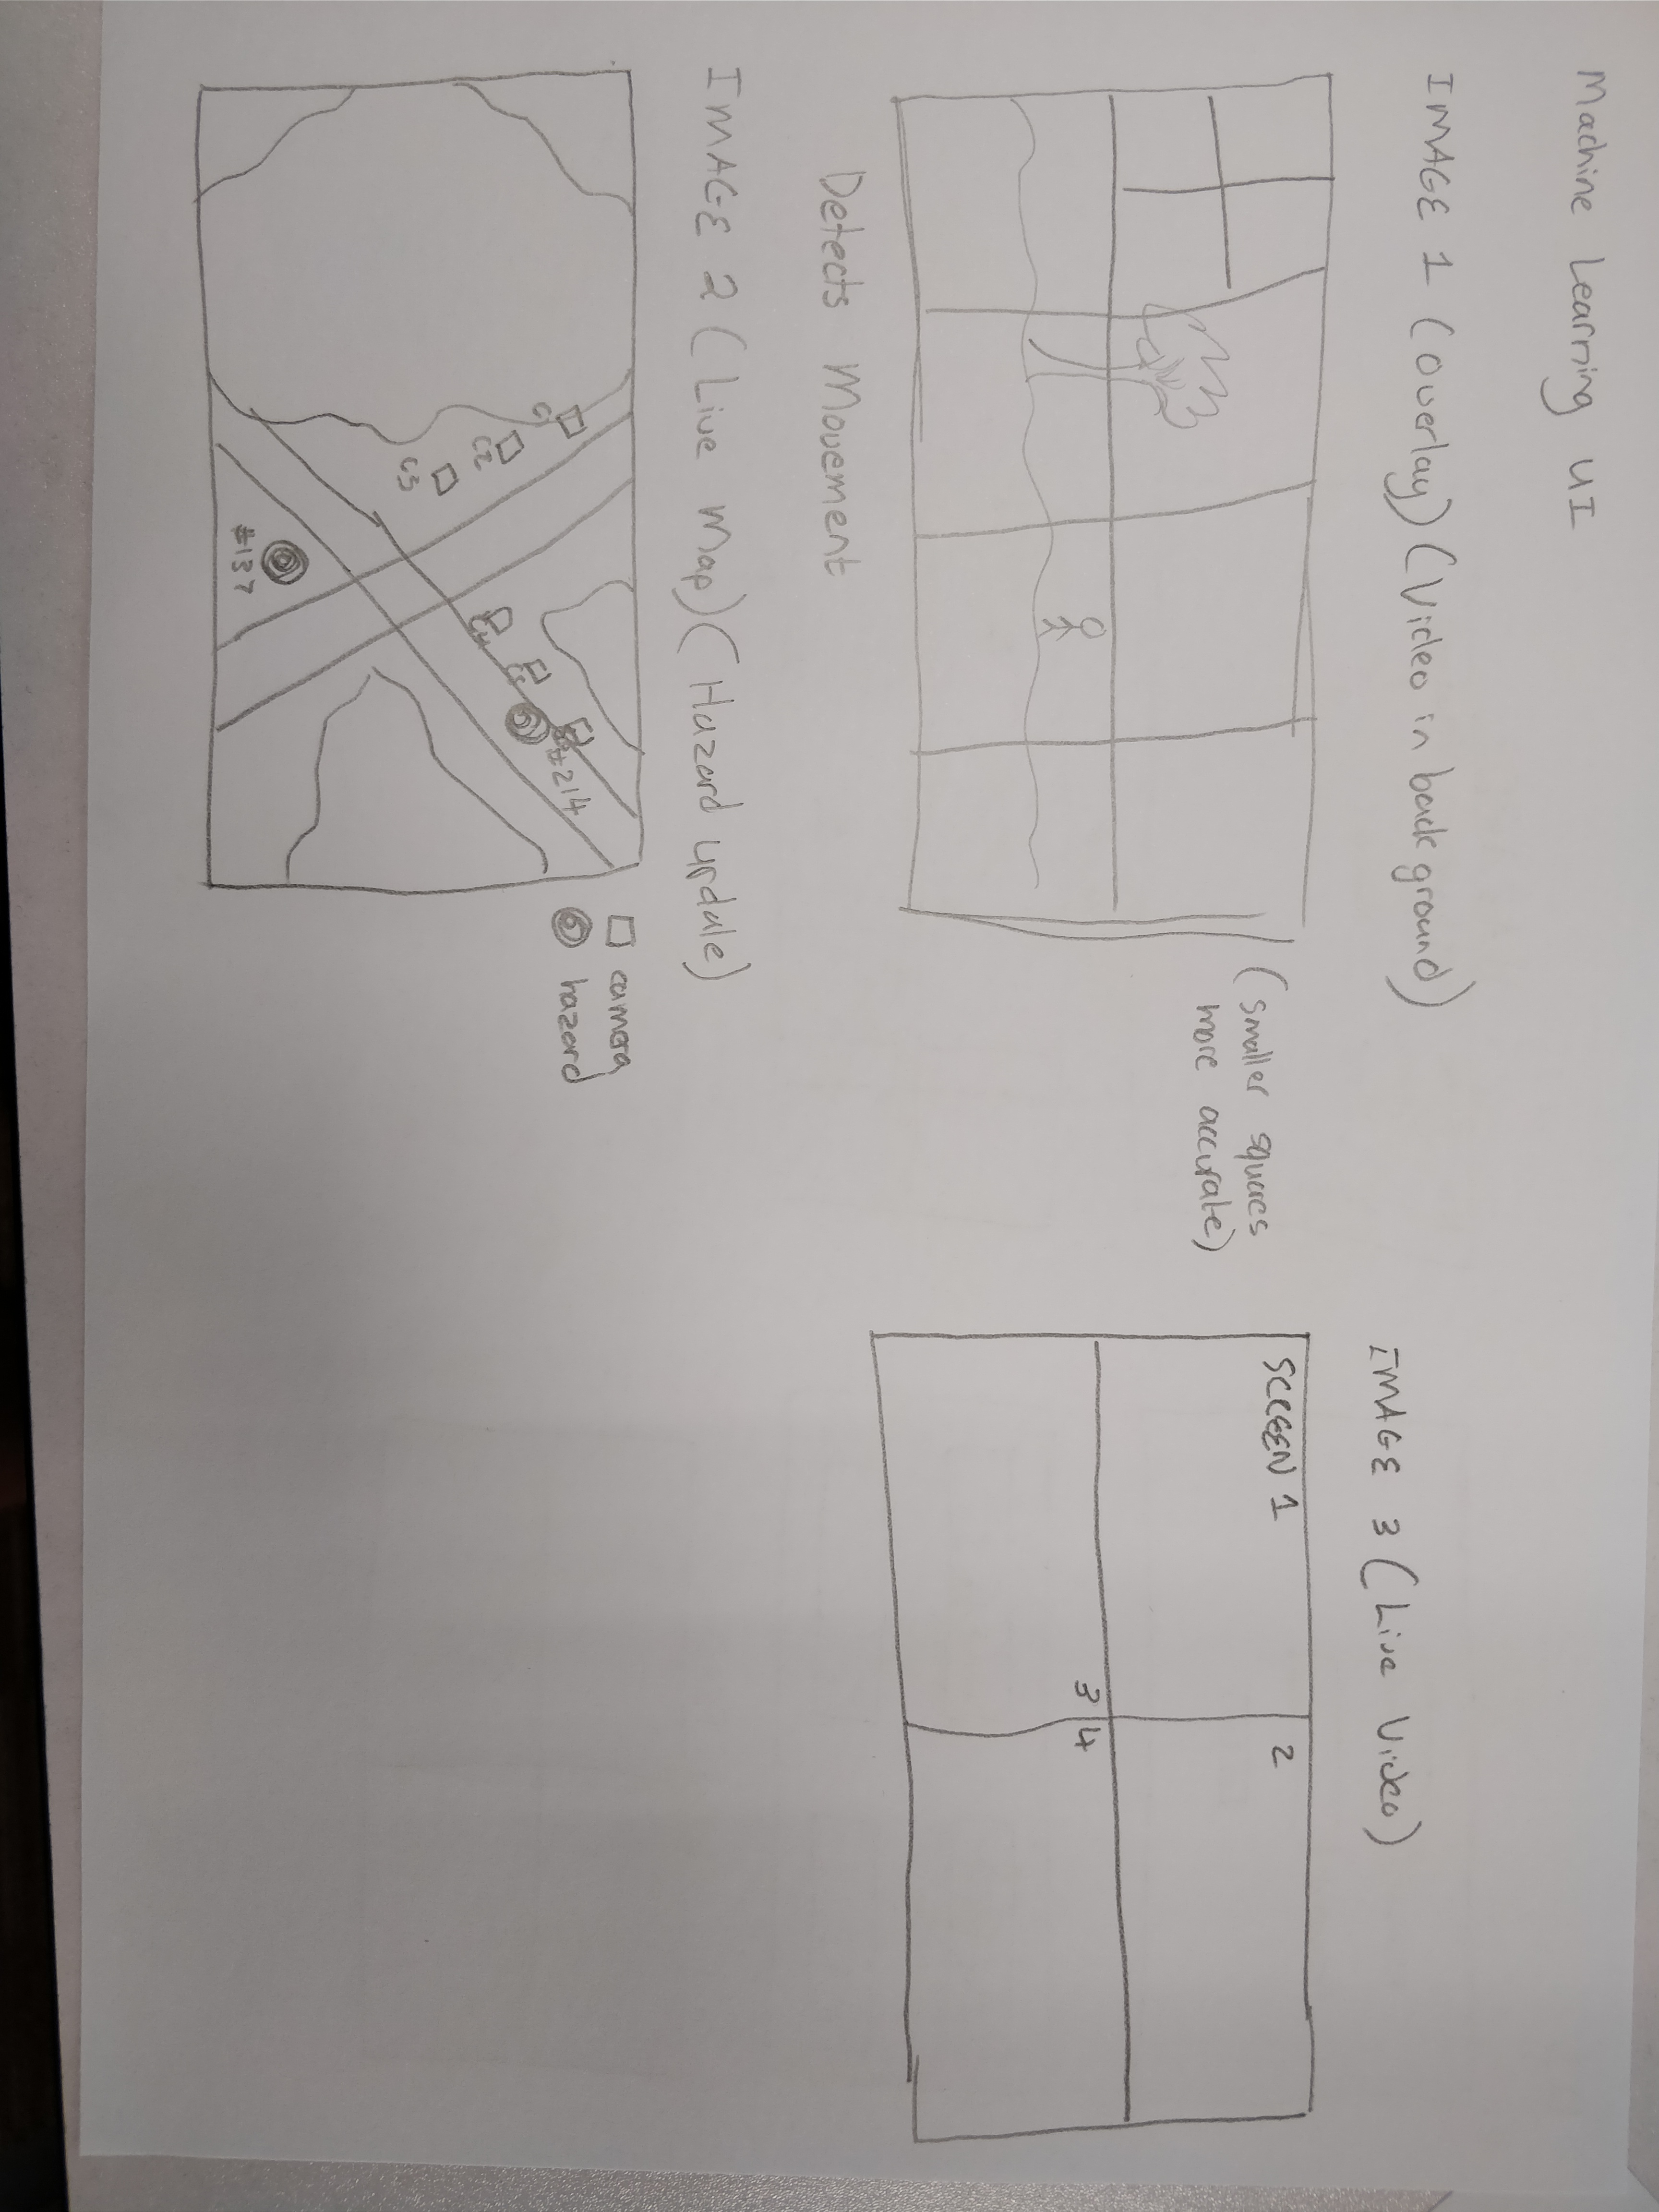 Machine Learning UI
IMAGE 1 (Overlay) (Video in background)
(smaller squares
more accurate)
Detects Movement
IMAGE 2 (Live Map) (Hazard update)
C2
C3
C4
C5
#214
#137
camera
hazard
IMAGE 3 (Live Video)
SCREEN 1
2
3
4